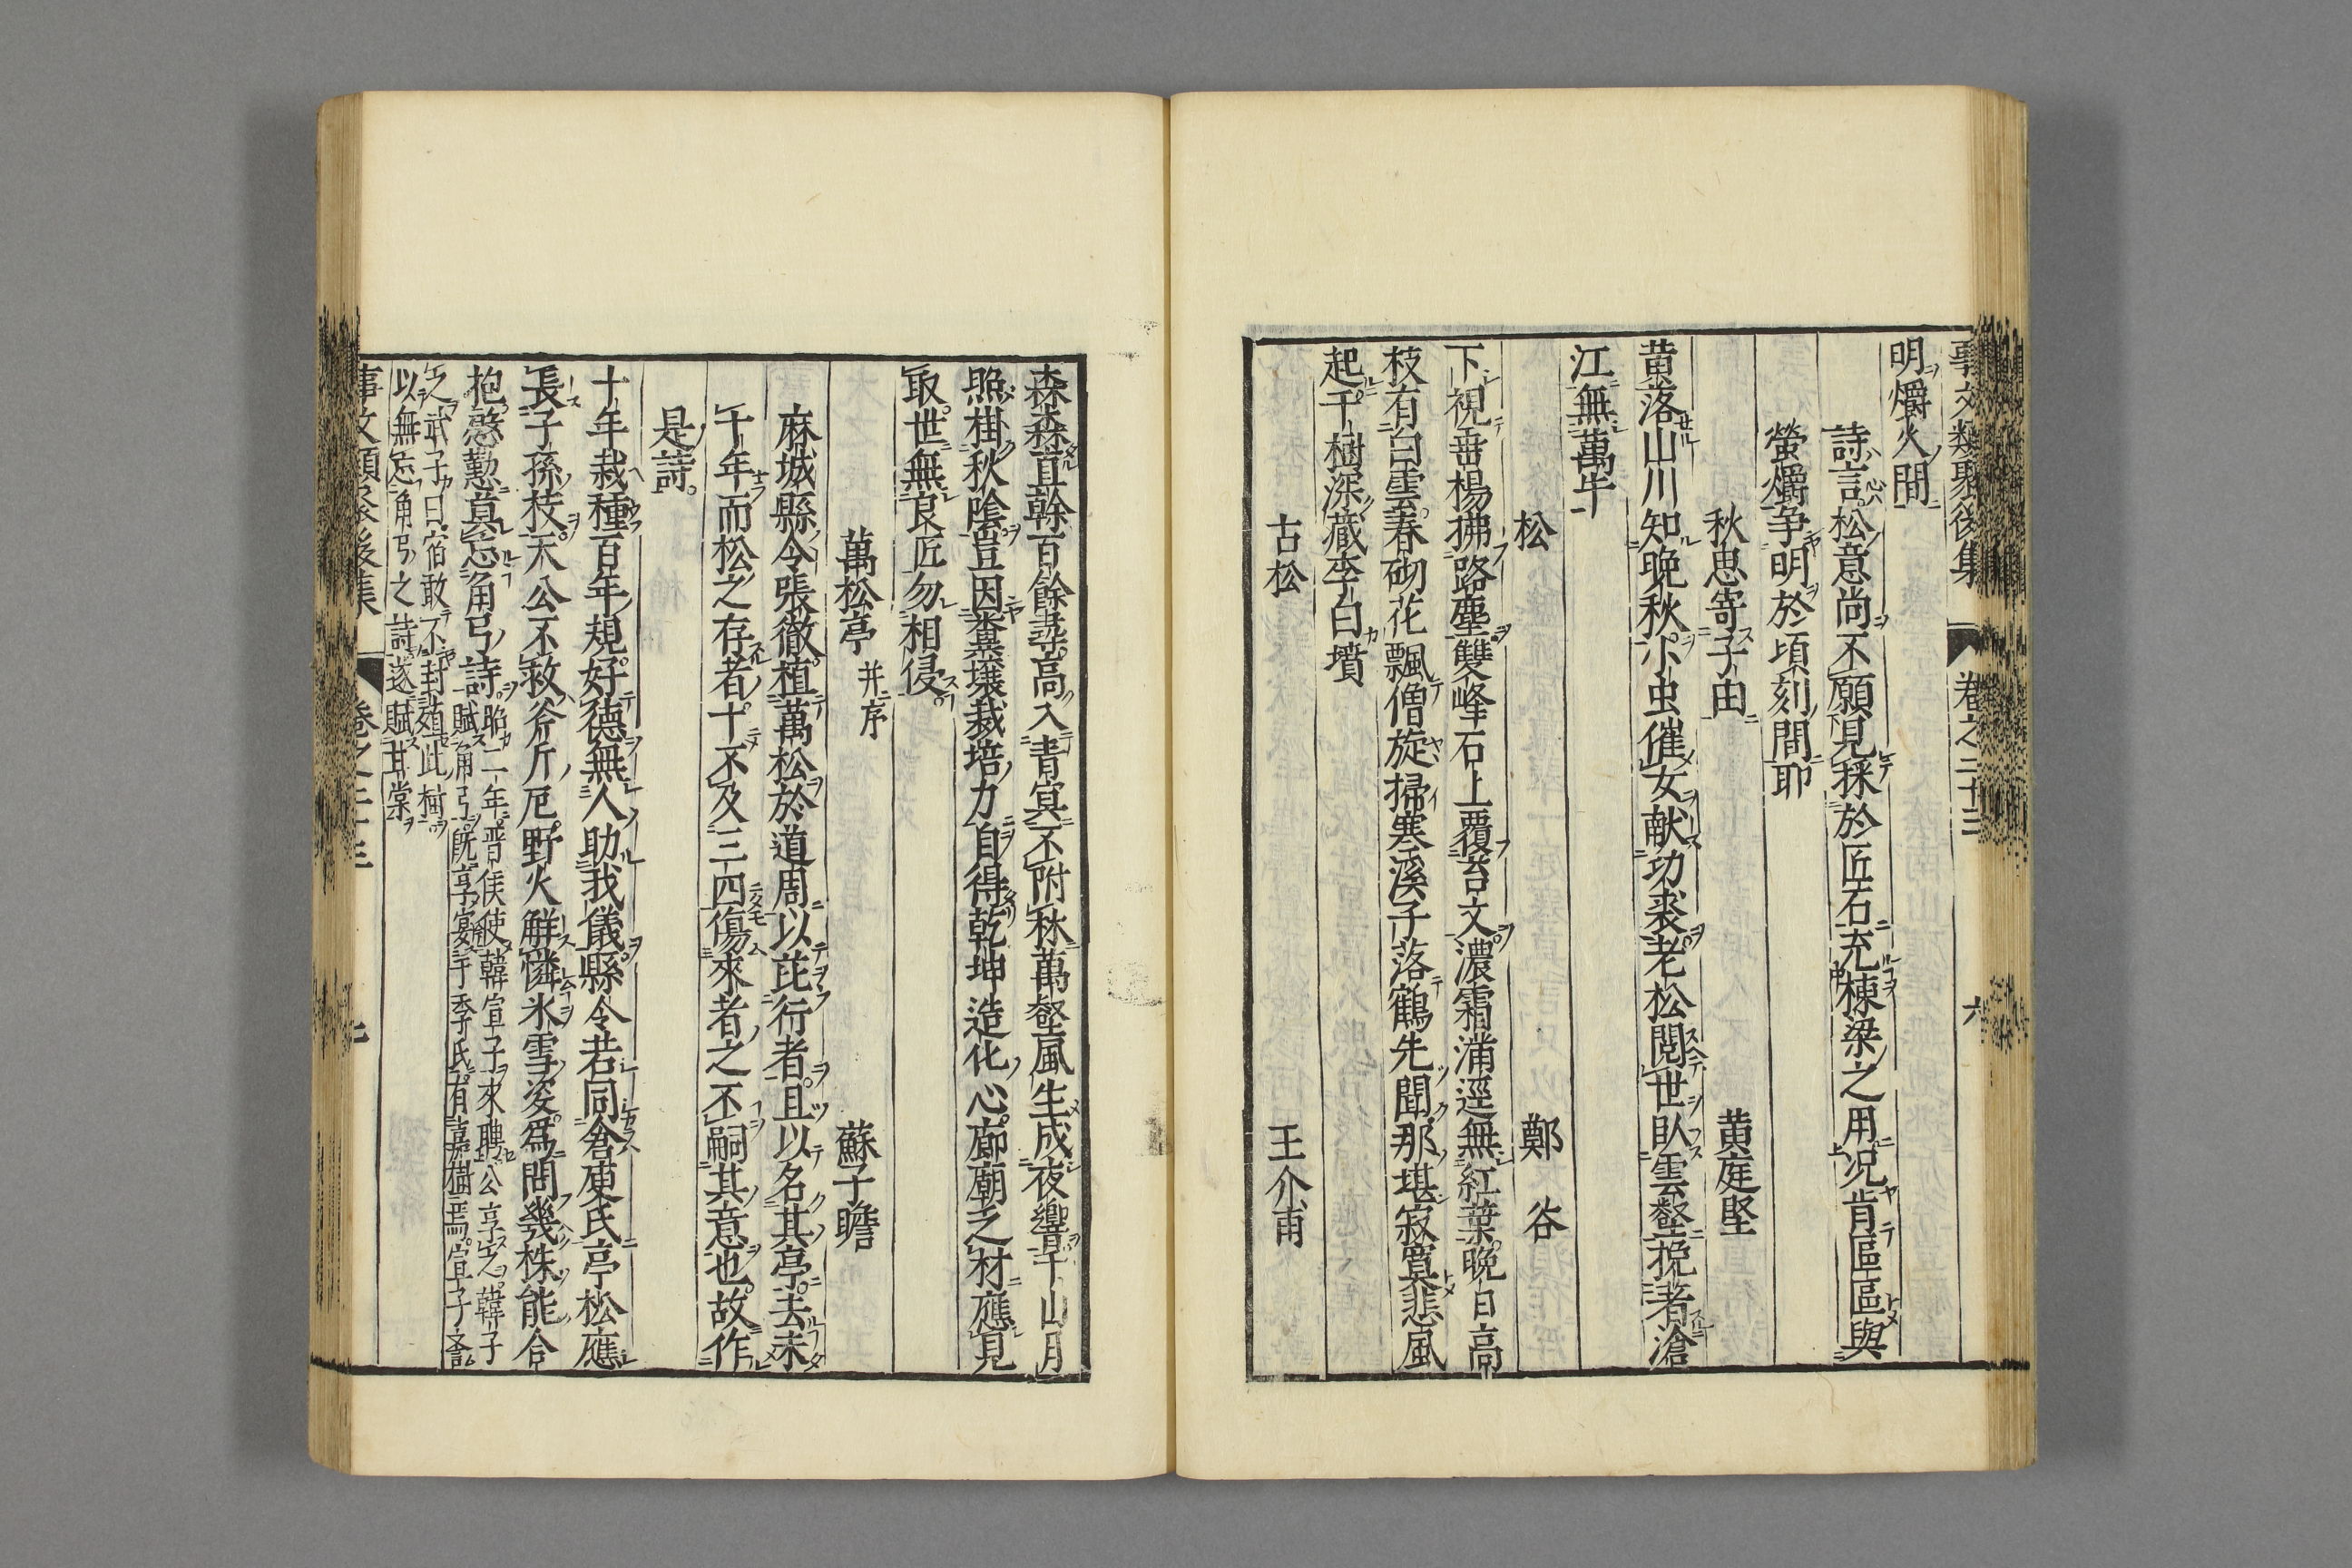 事文類聚後集 卷之二十三 六
明爝火間
詩言松意尚不願見採於匠石充棟梁之用況肯區區與
螢爝爭明於頃刻間耶
秋思寄子由 黄庭堅
黄落山川知晚秋小虫催女献功裘老松閲世臥雲壑挽著滄
江無萬牛
松 鄭谷
下視垂楊拂路塵雙峰石上覆苔文濃霜滿逕無紅葉晚日高
枝有白雲春砌花飄僧旋掃寒溪子落鶴先聞那堪寂寞悲風
起千樹深藏李白墳
古松 王介甫
森森直幹百餘尋高入青冥不附林萬壑風生成夜響千山月
照掛秋陰豈因糞壤栽培力自得乾坤造化心廊廟之材應見
取世無良匠勿相侵
萬松亭 并序 蘇子瞻
麻城縣令張徹植萬松於道周以芘行者且以名其亭去未
十年而松之存者十不及三四傷來者之不嗣其意也故作
是詩
十年栽種百年規好德無人助我儀縣令若同倉庾氏亭松應
長子孫枝天公不救斧斤厄野火解憐氷雪姿為問幾株能合
抱慇懃莫忘角弓詩昭二年晋侯使韓宣子來聘公享之韓子
賦角弓既享宴于季氏有嘉樹焉宣子譽
之武子曰宿敢不封殖此樹
以無忘角弓之詩遂賦甘棠
事文類聚後集 卷之二十三 七